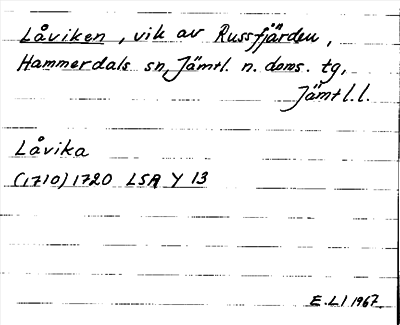 Låviken, vik av Russfjärden,
Hammerdals sn, Jämtl. n. doms. tg,
Jämtl.l.
Låvika
(1710) 1720 LSA Y 13
E.LI 1967